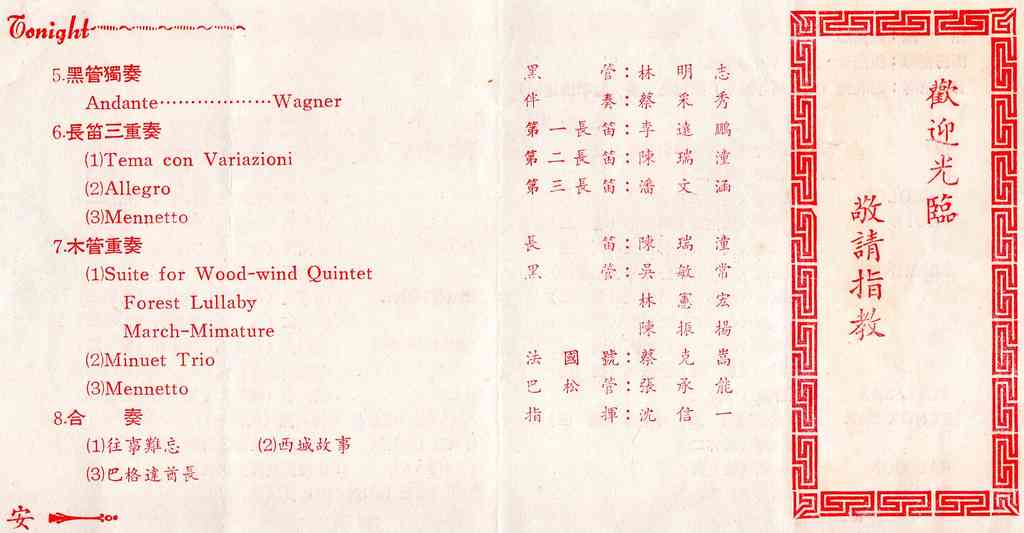 Tonight
5.黑管獨奏
Andante··················Wagner
6.長笛三重奏
(1)Tema con Variazioni
(2)Allegro
(3)Mennetto
7.木管重奏
(1)Suite for Wood-wind Quintet
Forest Lullaby
March-Mimature
(2)Minuet Trio
(3)Mennetto
8.合奏
(1)往事難忘 (2)西城故事
(3)巴格達酋長
安
黑管：林明志
伴奏：蔡采秀
第一長笛：李遠鵬
第二長笛：陳瑞潼
第三長笛：潘文涵
長笛：陳瑞潼
黑管：吳敏常
林憲宏
陳振揚
法國號：蔡克嵩
巴松管：張承能
指揮：沈信一
歡迎光臨
敬請指教